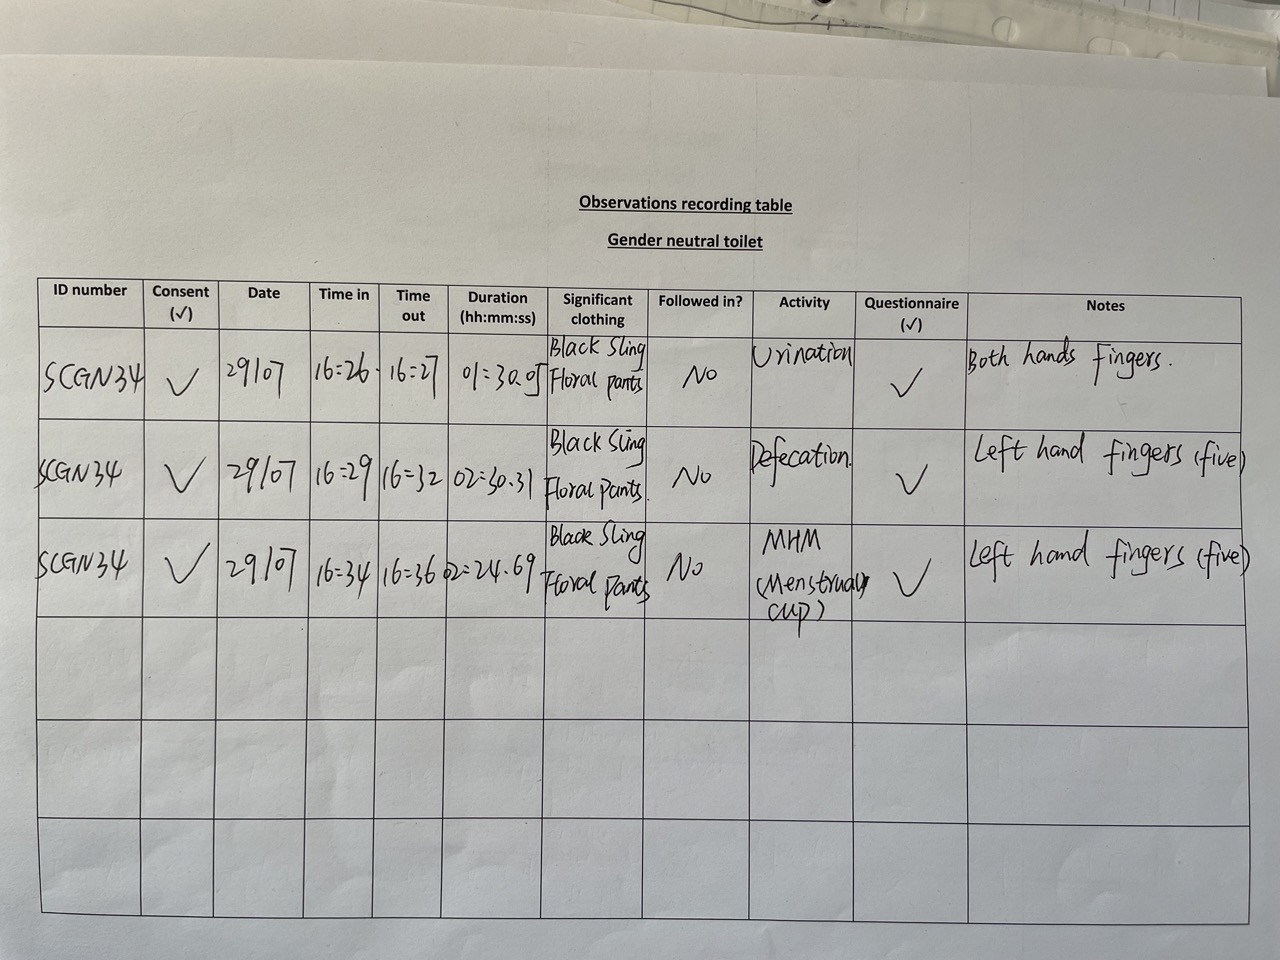 Observations recording table
Gender neutral toilet
ID number Consent (✓) Date Time in Time out Duration (hh:mm:ss) Significant clothing Followed in? Activity Questionnaire (✓) Notes
SCGN34 ✓ 29/07 16:26 16:27 01:30.05 Black Sling Floral pants No Urination ✓ Both hands fingers.
SCGN34 ✓ 29/07 16:29 16:32 02:30.31 Black Sling Floral pants. No Defecation. ✓ Left hand fingers (five)
SCGN34 ✓ 29/07 16:34 16:36 02:24.69 Black Sling Floral pants No MHM (Menstrual cup) ✓ Left hand fingers (five)